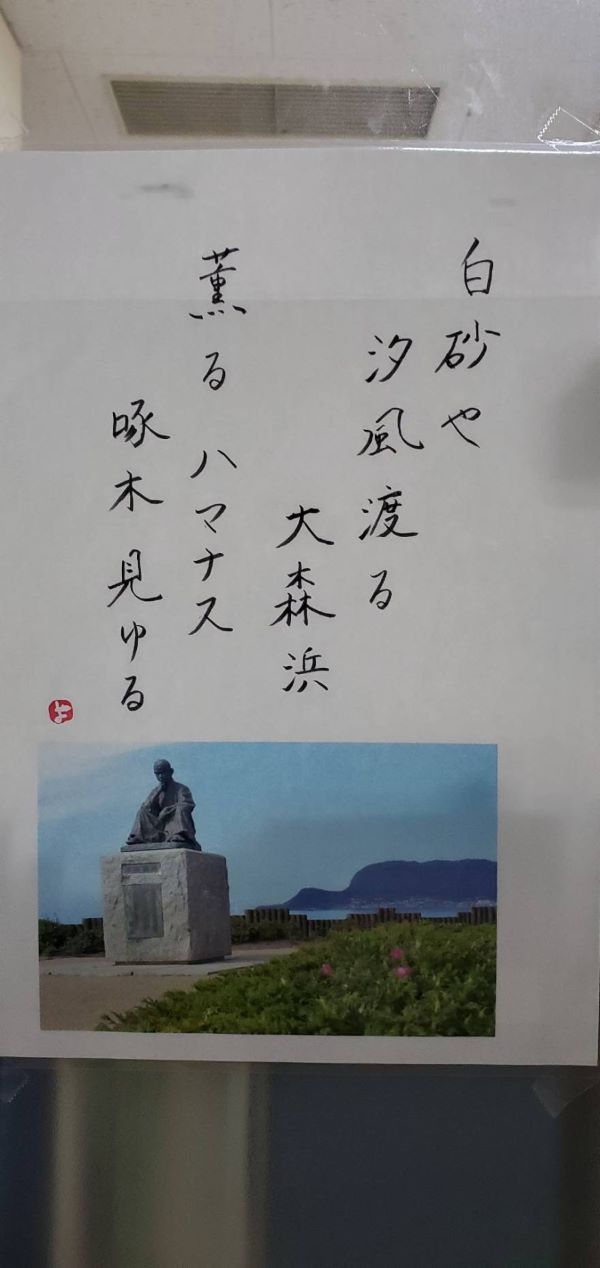 白砂や
汐風渡る
大森浜
薫るハマナス
啄木見ゆる
よ